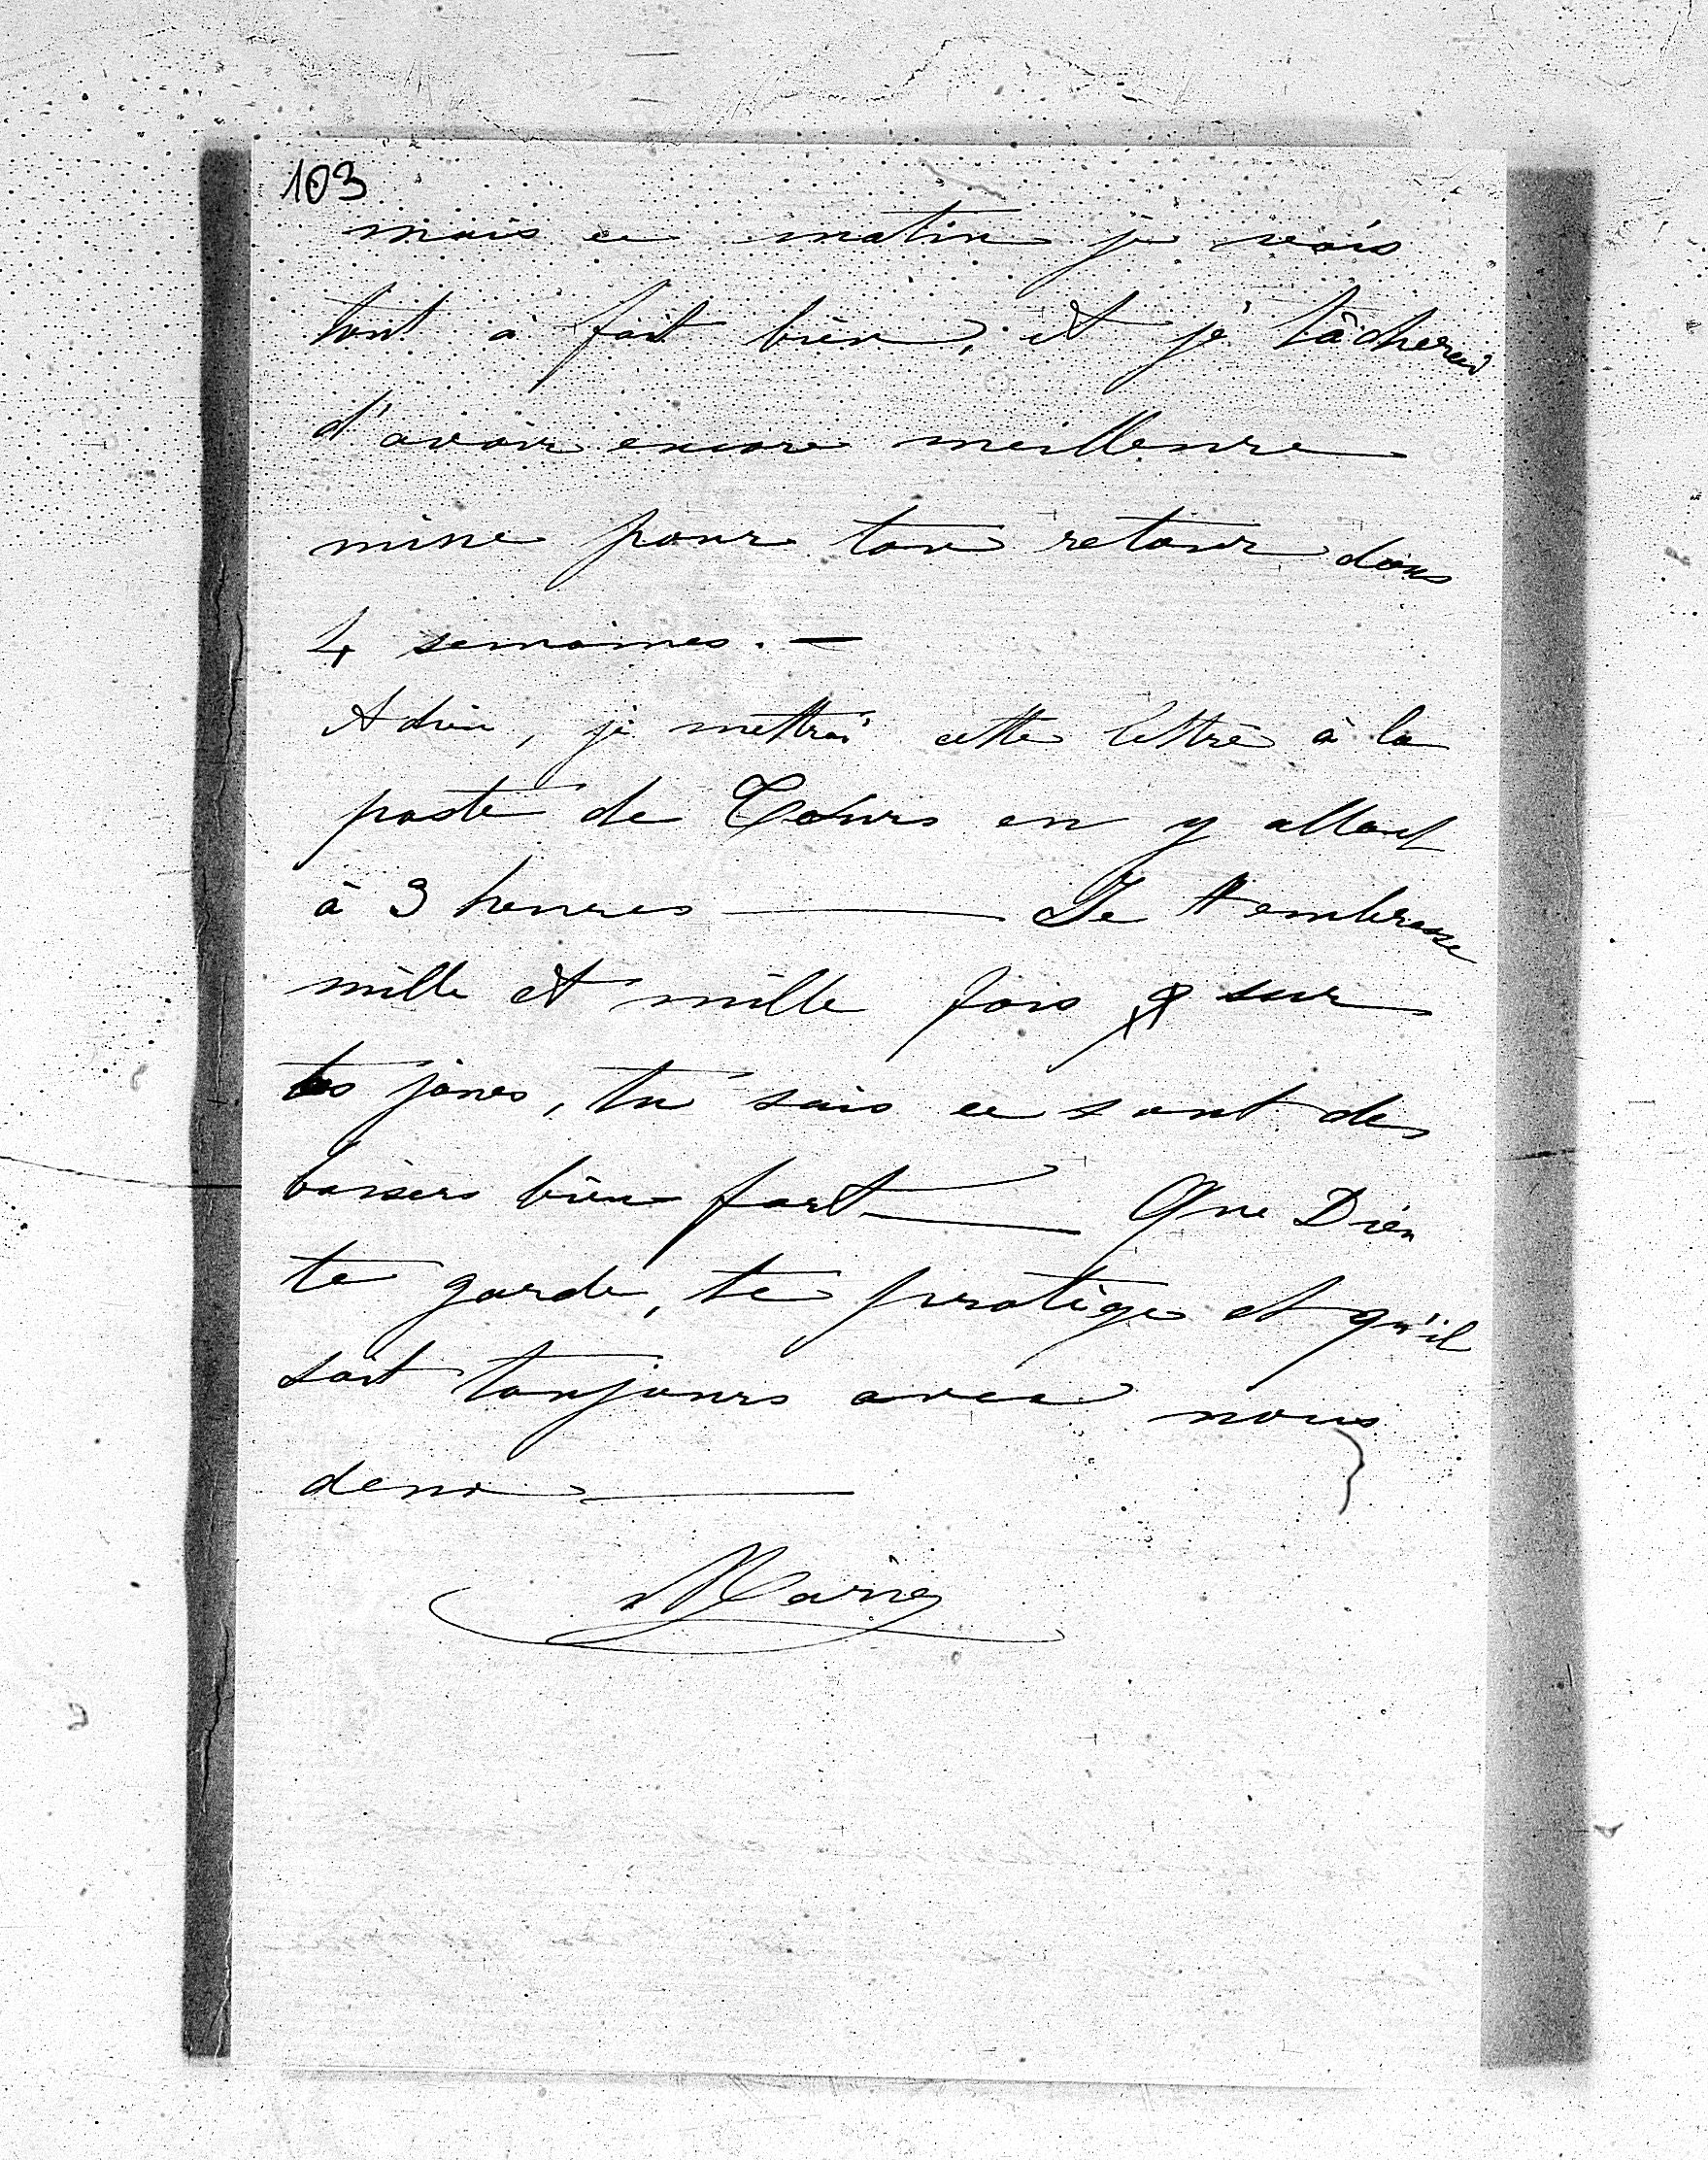 103
mais ce matin je vais
tout à fait bien, et je tâcherai
d'avoir encore meilleure
mine pour ton retour dans
4 semaines. —
Adieu, je mettrai cette lettre à la
poste de Tours en y allant
à 3 heures — Je t'embrasse
mille et mille fois sur
tes joues, tu sais ce sont des
baisers bien fort — Que Dieu
te garde, te protège et qu'il
soit toujours avec nous
deux —
Marie